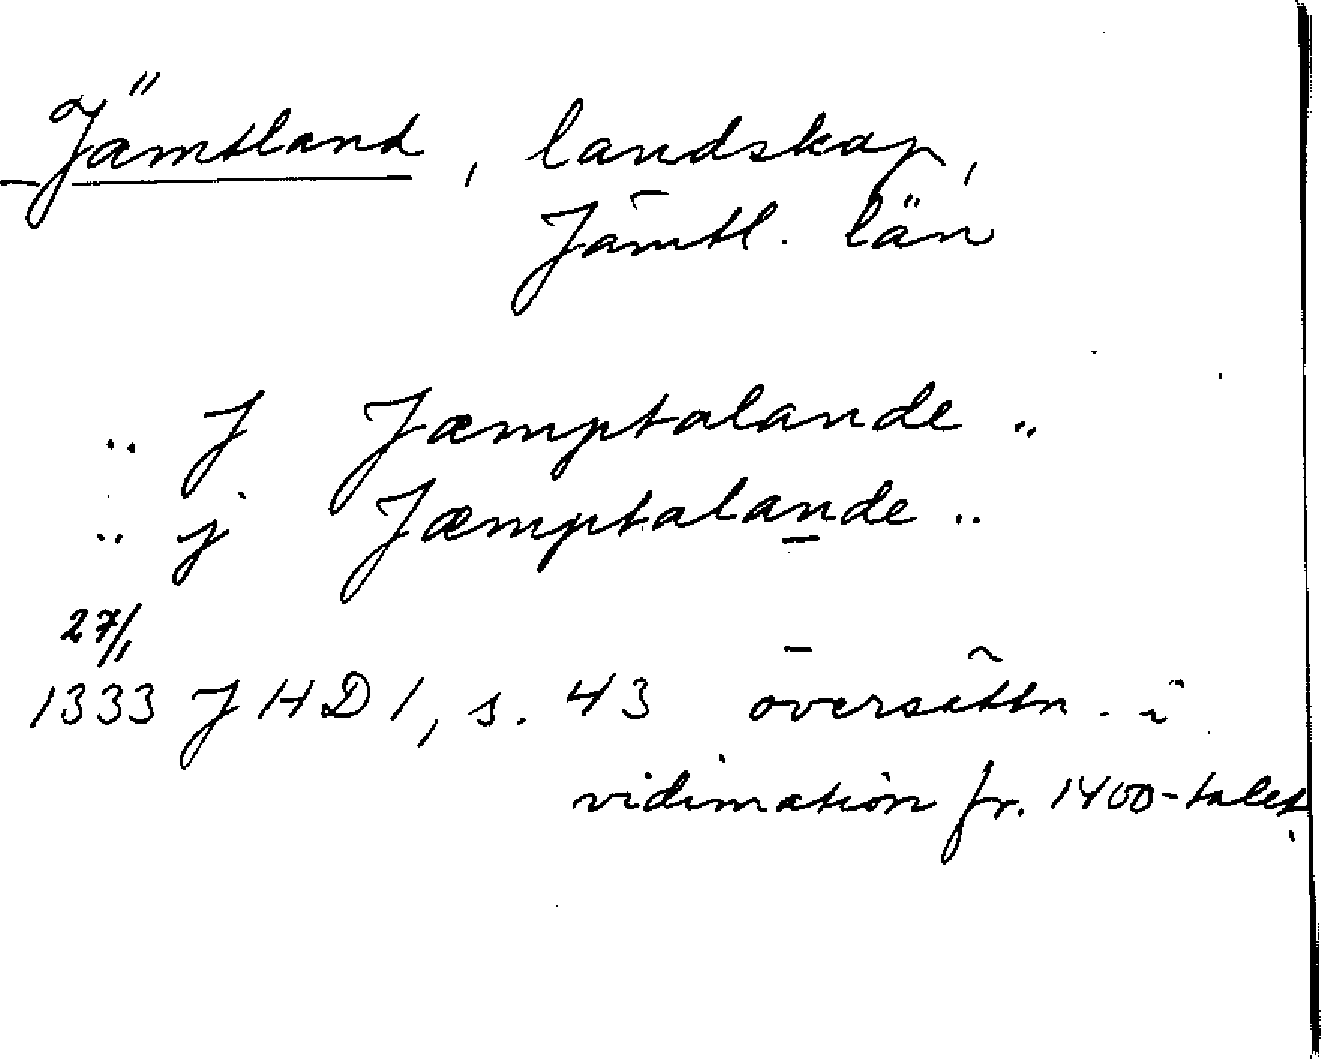 Jämtland, landskap,
Jämtl. län
.. J Jæmptalande ..
.. j Jæmptalande ..
27/1
1333 JHD 1, s. 43 översättn. i
vidimation fr. 1400-talet